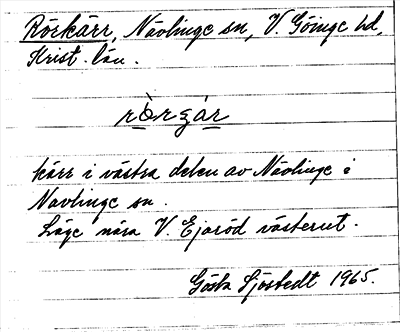 Rörkärr, Nävlinge sn, V. Göinge hd,
Krist. län.
rö̀rgár
kärr i västra delen av Nävlinge i
Navlinge sn.
Läge nära V. Ejaröd västerut.
Gösta Sjöstedt 1965.